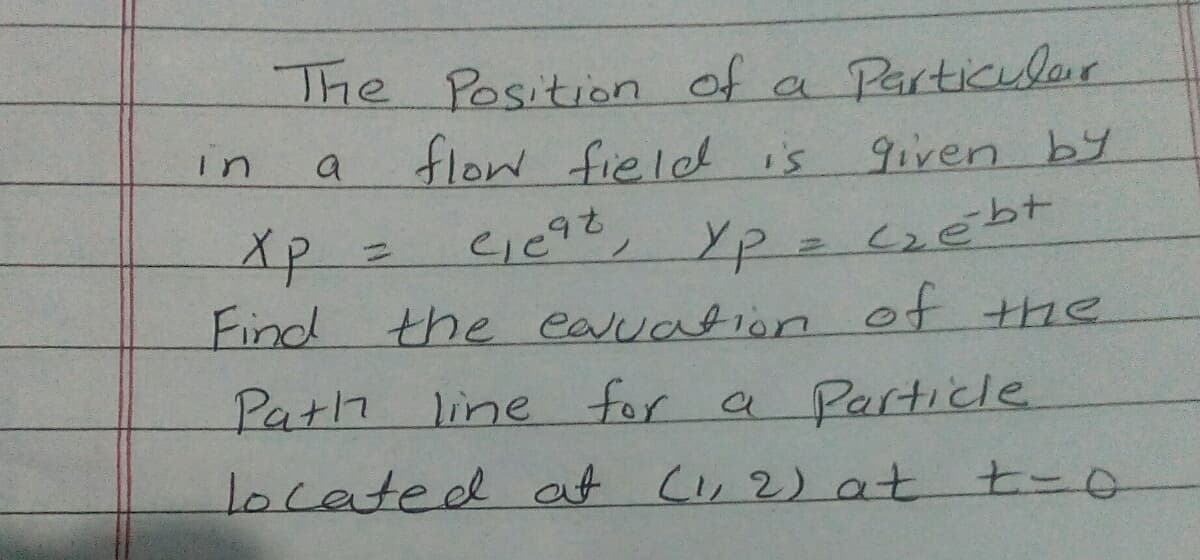 The Position of a Particular
in a flow field is given by
Xp = c₁eᵃᵗ, Yp = c₂e⁻ᵇᵗ
Find the eauation of the
Path line for a Particle
located at (1, 2) at t=0